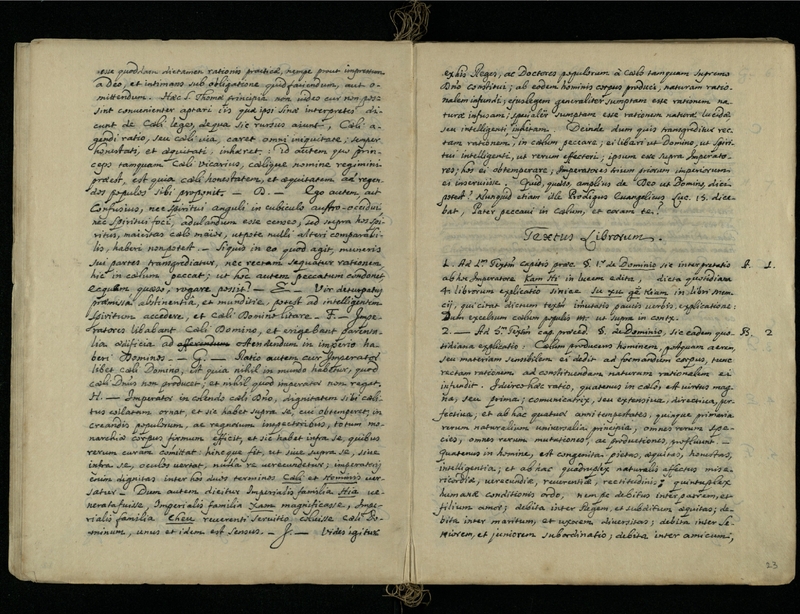 esse quoddam dictamen rationis practicæ, nempe prout impressum
a Deo, et intimans sub obligatione quid faciendum, aut o-
mittendum. Hæc S. Thomæ principia non video cur non pos-
sint convenienter aptari iis, quæ ipsi sinæ interpretes di-
cunt de Cæli lege, de qua sic rursus aiunt, Cæli a-
gendi ratio, seu Cæli via, caret omni iniquitate; semper
honestati, et æquitati inhæret; id autem quo prin-
ceps tamquam Cæli vicarius, cælique nomine regimini
præest, est quia cæli honestatem, et æquitatem ad regen-
dos populos sibi proponit. — D. — Ego autem aut
Confusius, nec Spiritui anguli in cubiculo austro-occiduo
nec Spiritui foci, adulandum esse censeo, sed supra hos Spi-
ritus, maiestas cæli maior, utpote nulli alteri comparabi-
lis, haberi non potest. — Siquis in eo quod agit, muneris
sui partes transgrediatur, nec rectam sequatur rationem
hic in cælum peccat; ut hoc autem peccatum condonet
quæso, rogare possit? — E. — Vir deturpatus
præmissa abstinentia, et munditie, potest ad intelligentem
Spiritum accedere, et cæli Domino litare. — F. — Impe-
ratores libabant Cæli Domino, et erigebant parenta-
lia ædificia ad ostendendum in imperio ha-
beri Dominos. — G. — Ratio autem cur Imperator
libet cæli Domino, est quia nihil in mundo habetur, quod
cæli Dnus non producet; et nihil quod imperator non regat.
H. — Imperator in colendo cæli Dno, dignitatem sibi cæli-
tus collatam ornat, et sic habet supra se, cui obtemperet; in
creandis populorum, ac regentium inspectoribus, totum mo-
narchiæ corpus firmum efficit, et sic habet infra se, quibus
rerum curam comittat: hinc fit, ut sive supra se, sive
infra se, oculos vertat, nulla re verecundetur; imperatoris
enim dignitas inter hos duos terminos Cæli et Hominis ver-
satur — Dum autem dicitur Imperialis familia Hia ve-
nerata fuisse, Imperialis familia Xam magnificasse, Impe-
rialis familia Cheu reverenti servitio coluisse cæli Do-
minum, unus et idem est sensus. — J. — Vides igitur
ex his Reges, ac Doctores populorum a cælo tamquam supremo
Dno constitui; ab eodem hominis corpus produci, naturam ratio-
nalem infundi; eiusdem generaliter sumptam esse rationem na-
turæ infusam; specialiter sumptam esse rationem naturæ lucidæ
seu intelligenti inhærentem. Deinde dum quis transgreditur rec-
tam rationem, in cælum peccare; ei libari ut Domino, ut Spiri-
tui intelligenti, ut rerum effectori; ipsum esse supra Imperato-
res; hos ei obtemperare, Imperatores trium priorum imperiorum
ei inservisse. Quid, quæso, amplius de Deo ut Domino, dici
potest? Nunquid etiam ille Prodigus Evangelicus Luc. 15. dice-
bat, Pater peccavi in cælum, et coram te?
Textus Librorum.
1. — Ad 2um Textum capitis præc. §. 1o. de Dominio sic interpretatio
ab hoc Imperatore Kam Hi in lucem edita, dicta quotidiana
4r. librorum explicatio sinice Su xu ge kiam in libri Men-
cij, qui citat dictum textum immutatis paucis verbis, explicatione:
Dum excelsum cælum populis etc. ut supra in contex.
2. — Ad 5um Textum cap. præced. §. de Dominio, sic eadem quo-
tidiana explicatio: Cælum producens hominem, postquam aerem,
seu materiam sensibilem ei dedit ad formandum corpus, tunc
rectam rationem ad constituendam naturam rationalem ei
infundit. Idcirco hæc ratio, quatenus in cælo, est virtus mag-
na, seu prima; comunicatrix, seu extensiva, directiva, per-
fectiva, et ab hac quatuor anni tempestates, quinque primaria
rerum naturalium universalia principia, omnes rerum spe-
cies, omnes rerum mutationes, ac productiones, profluunt. —
Quatenus in homine, est congenita pietas, æquitas, honestas,
intelligentia; et ab hac quadruplex naturalis affectus mise-
ricordiæ, verecundiæ, reverentiæ, rectitudinis; quintuplex
humanæ conditionis ordo, nempe debitus inter patrem, et
filium amor; debita inter Regem, et subditum æquitas; de-
bita inter maritum, et uxorem diversitas; debita inter se-
niorem, et juniorem subordinatio; debita inter amicum,
A. 1.
B. 2
23